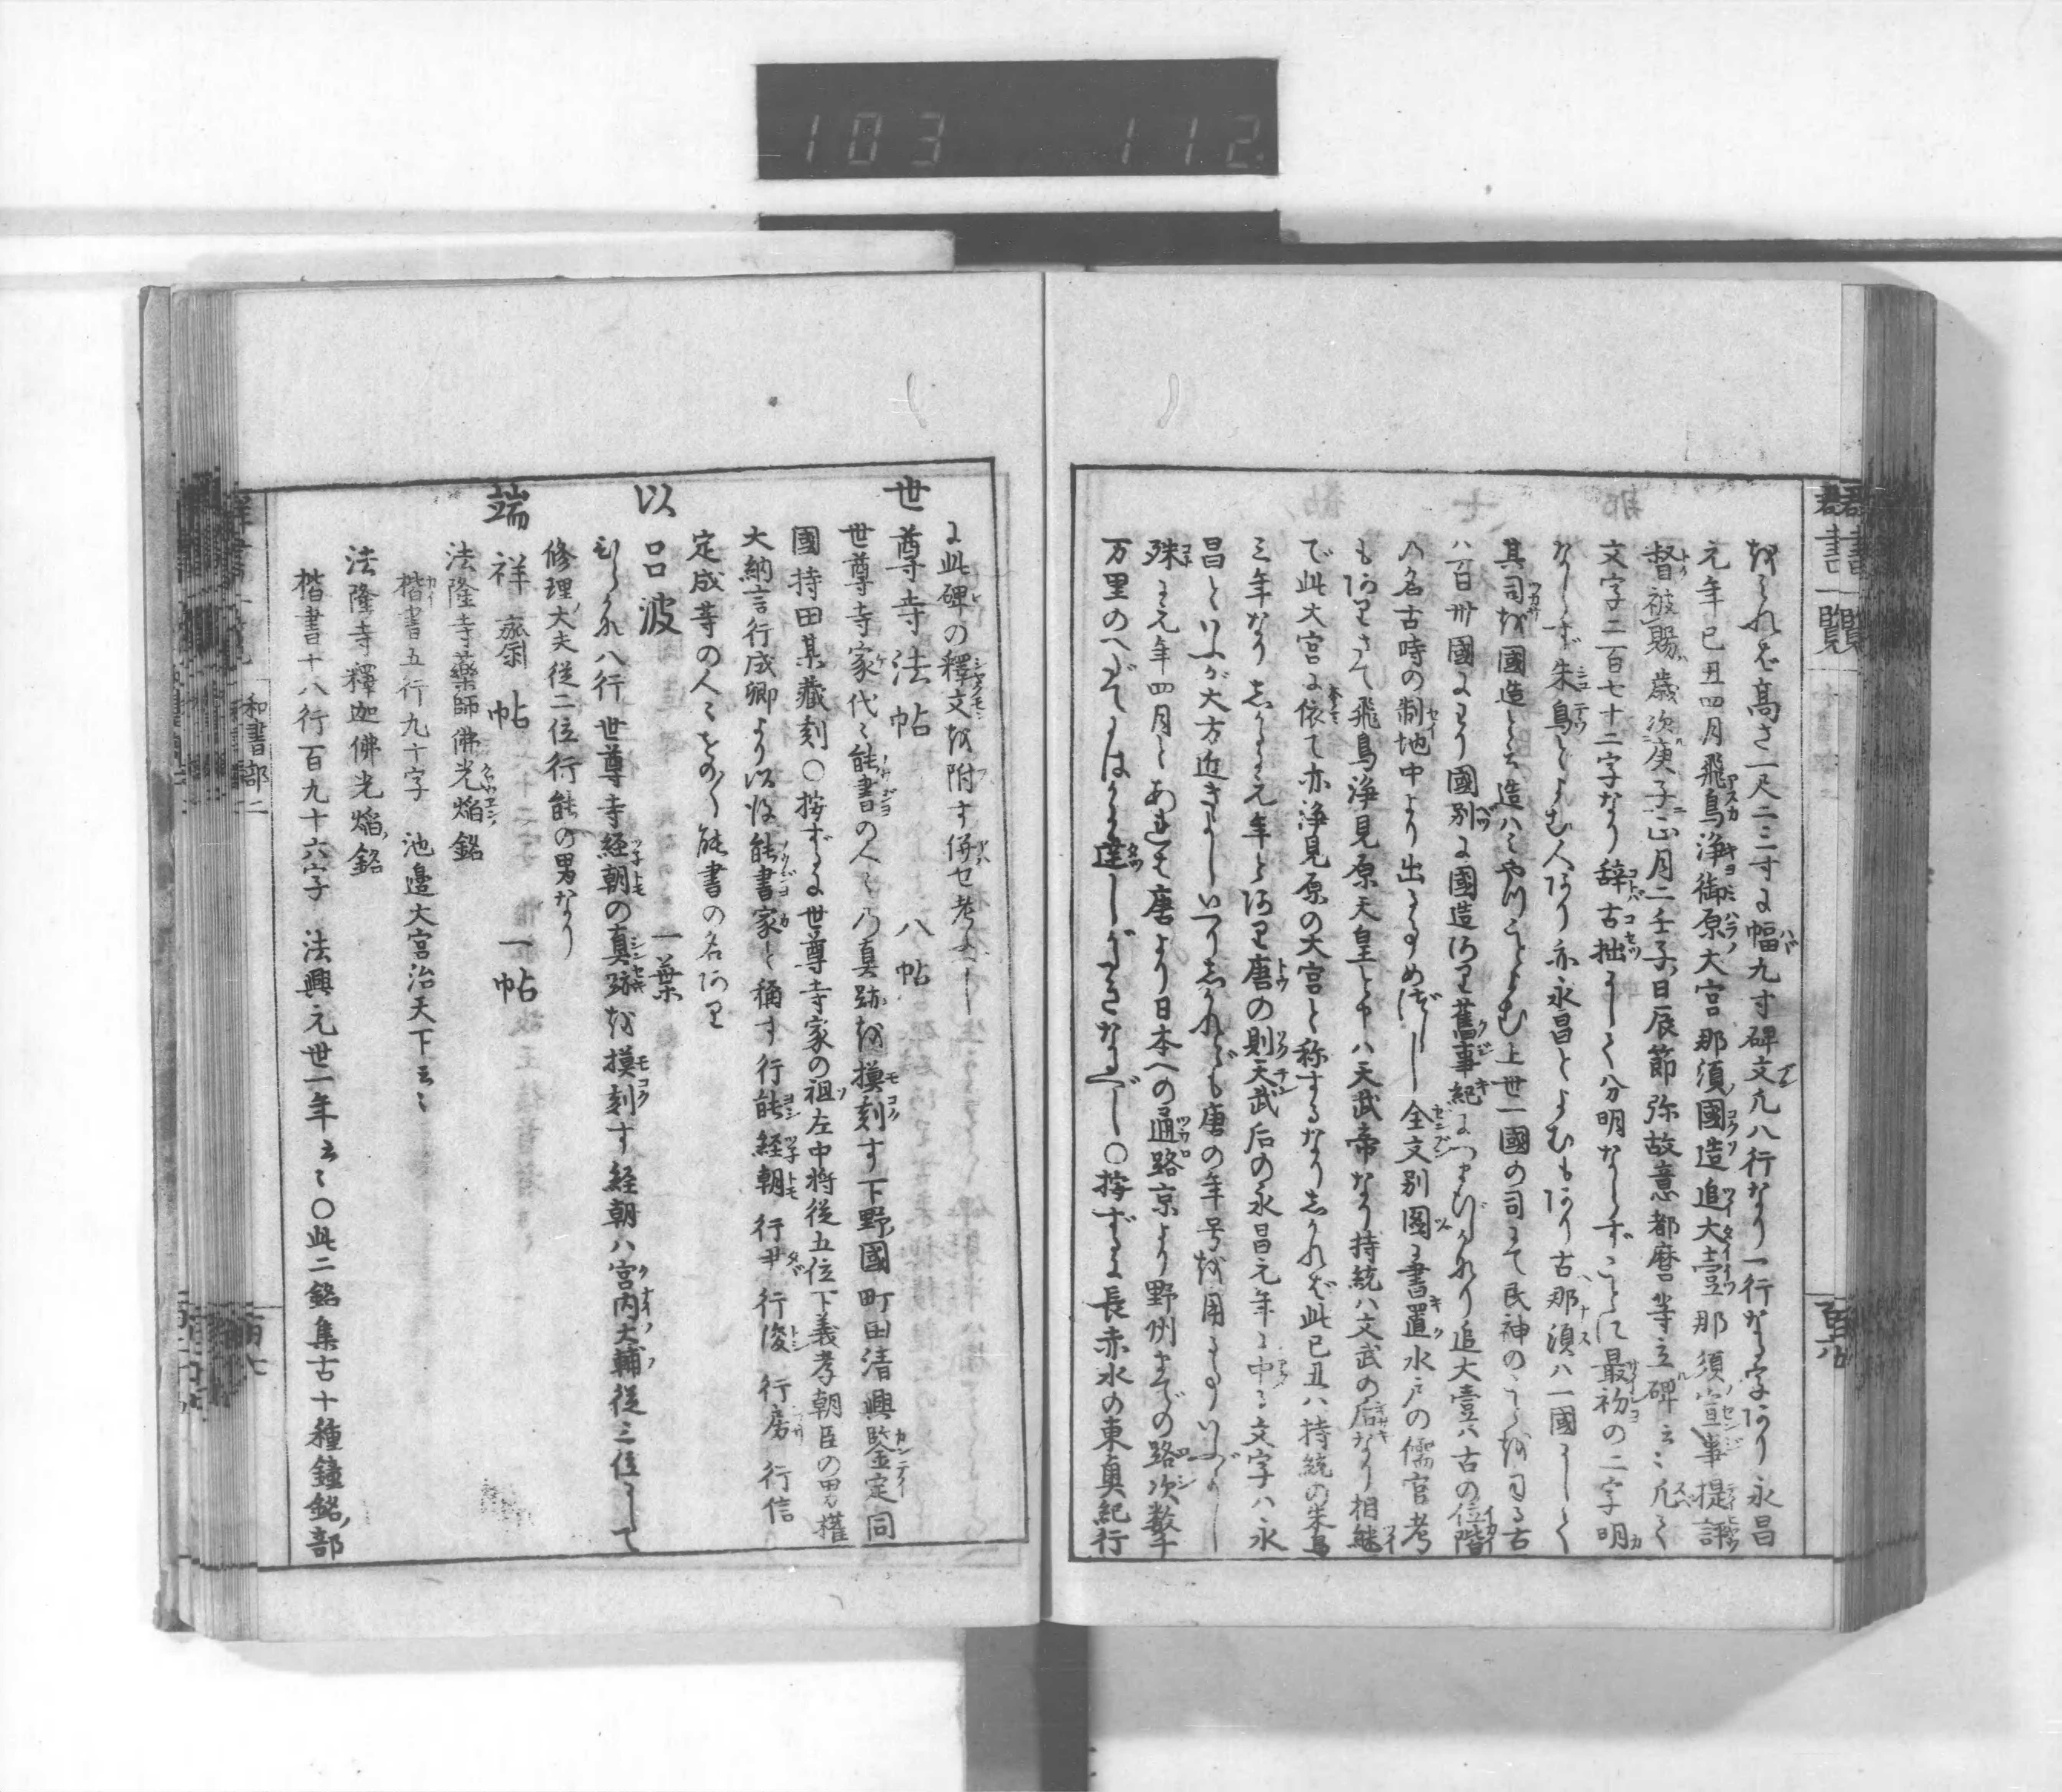 103 112
群書一覧
高さ一尺二三寸に幅九寸碑文凡八行なり一行な字あり永昌
元年已丑四月飛鳥浄御原大宮那須國造追大壹那須宣事提評
督被賜歳次庚子正月二壬子日辰節弥故意都麿等立碑云〻凡て
文字二百七十二字なり辞古拙にして分明ならず最初の二字明
ならず朱鳥とよむ人あり亦永昌とよむもあり古那須ハ一國にして
其司を國造と云造ハミやつことよむ上世一國の司にて民神のことを司る古
八百卅國より國別に國造あり舊事紀に追大壹ハ古の位階
の名古時の制地中より出るもめづらし全文別圖に書置水戸の儒官考
もありさて飛鳥浄見原天皇と申ハ天武帝なり持統ハ文武の后なり相継
で此大宮に依て亦浄見原の大宮と称するなりしかれバ此已丑ハ持統の朱鳥
三年なりしかるに元年とあり唐の則天武后の永昌元年に中る文字ハ永
昌といふが大方近きよしいへりしかれども唐の年号を用るもいぶかし
殊に元年四月とあれども唐より日本への通路京より野州までの路次数千
万里のへだてはるか達しがたきなるべし〇按ずるに長赤水の東奥紀行
に此碑の釋文を附す併セ考べし
世尊寺法帖 八帖
世尊寺家代〻能書の人〻の真跡を摸刻す下野國町田清興鑒定同
國持田某藏刻〇按ずるに世尊寺家の祖左中将従五位下義孝朝臣の男權
大納言行成卿より以後能書家と稱す行能経朝行尹行俊行房行信
定成等の人〻をのく能書の名あり
以呂波 一葉
ひらかな八行世尊寺経朝の真跡を摸刻す経朝ハ宮内大輔従三位にして
修理大夫従二位行能の男なり
端祥 帖 一帖
法隆寺藥師佛光焔銘
楷書五行九十字 池邉大宮治天下云〻
法隆寺釋迦佛光焔銘
楷書十八行百九十六字 法興元世一年云〻〇此二銘集古十種鐘銘部
和書部二